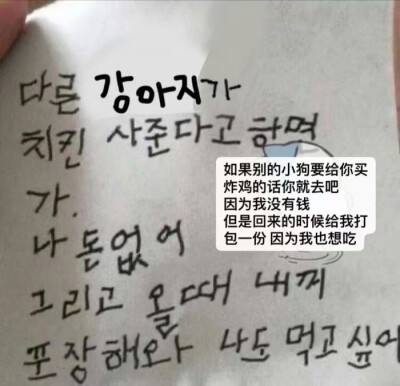 다른 강아지가
치킨 사준다고 하면
가.
나 돈 없어
그리고 올때 내꺼
포장해와 나도 먹고 싶어
如果别的小狗要给你买
炸鸡的话你就去吧
因为我没有钱
但是回来的时候给我打
包一份 因为我也想吃